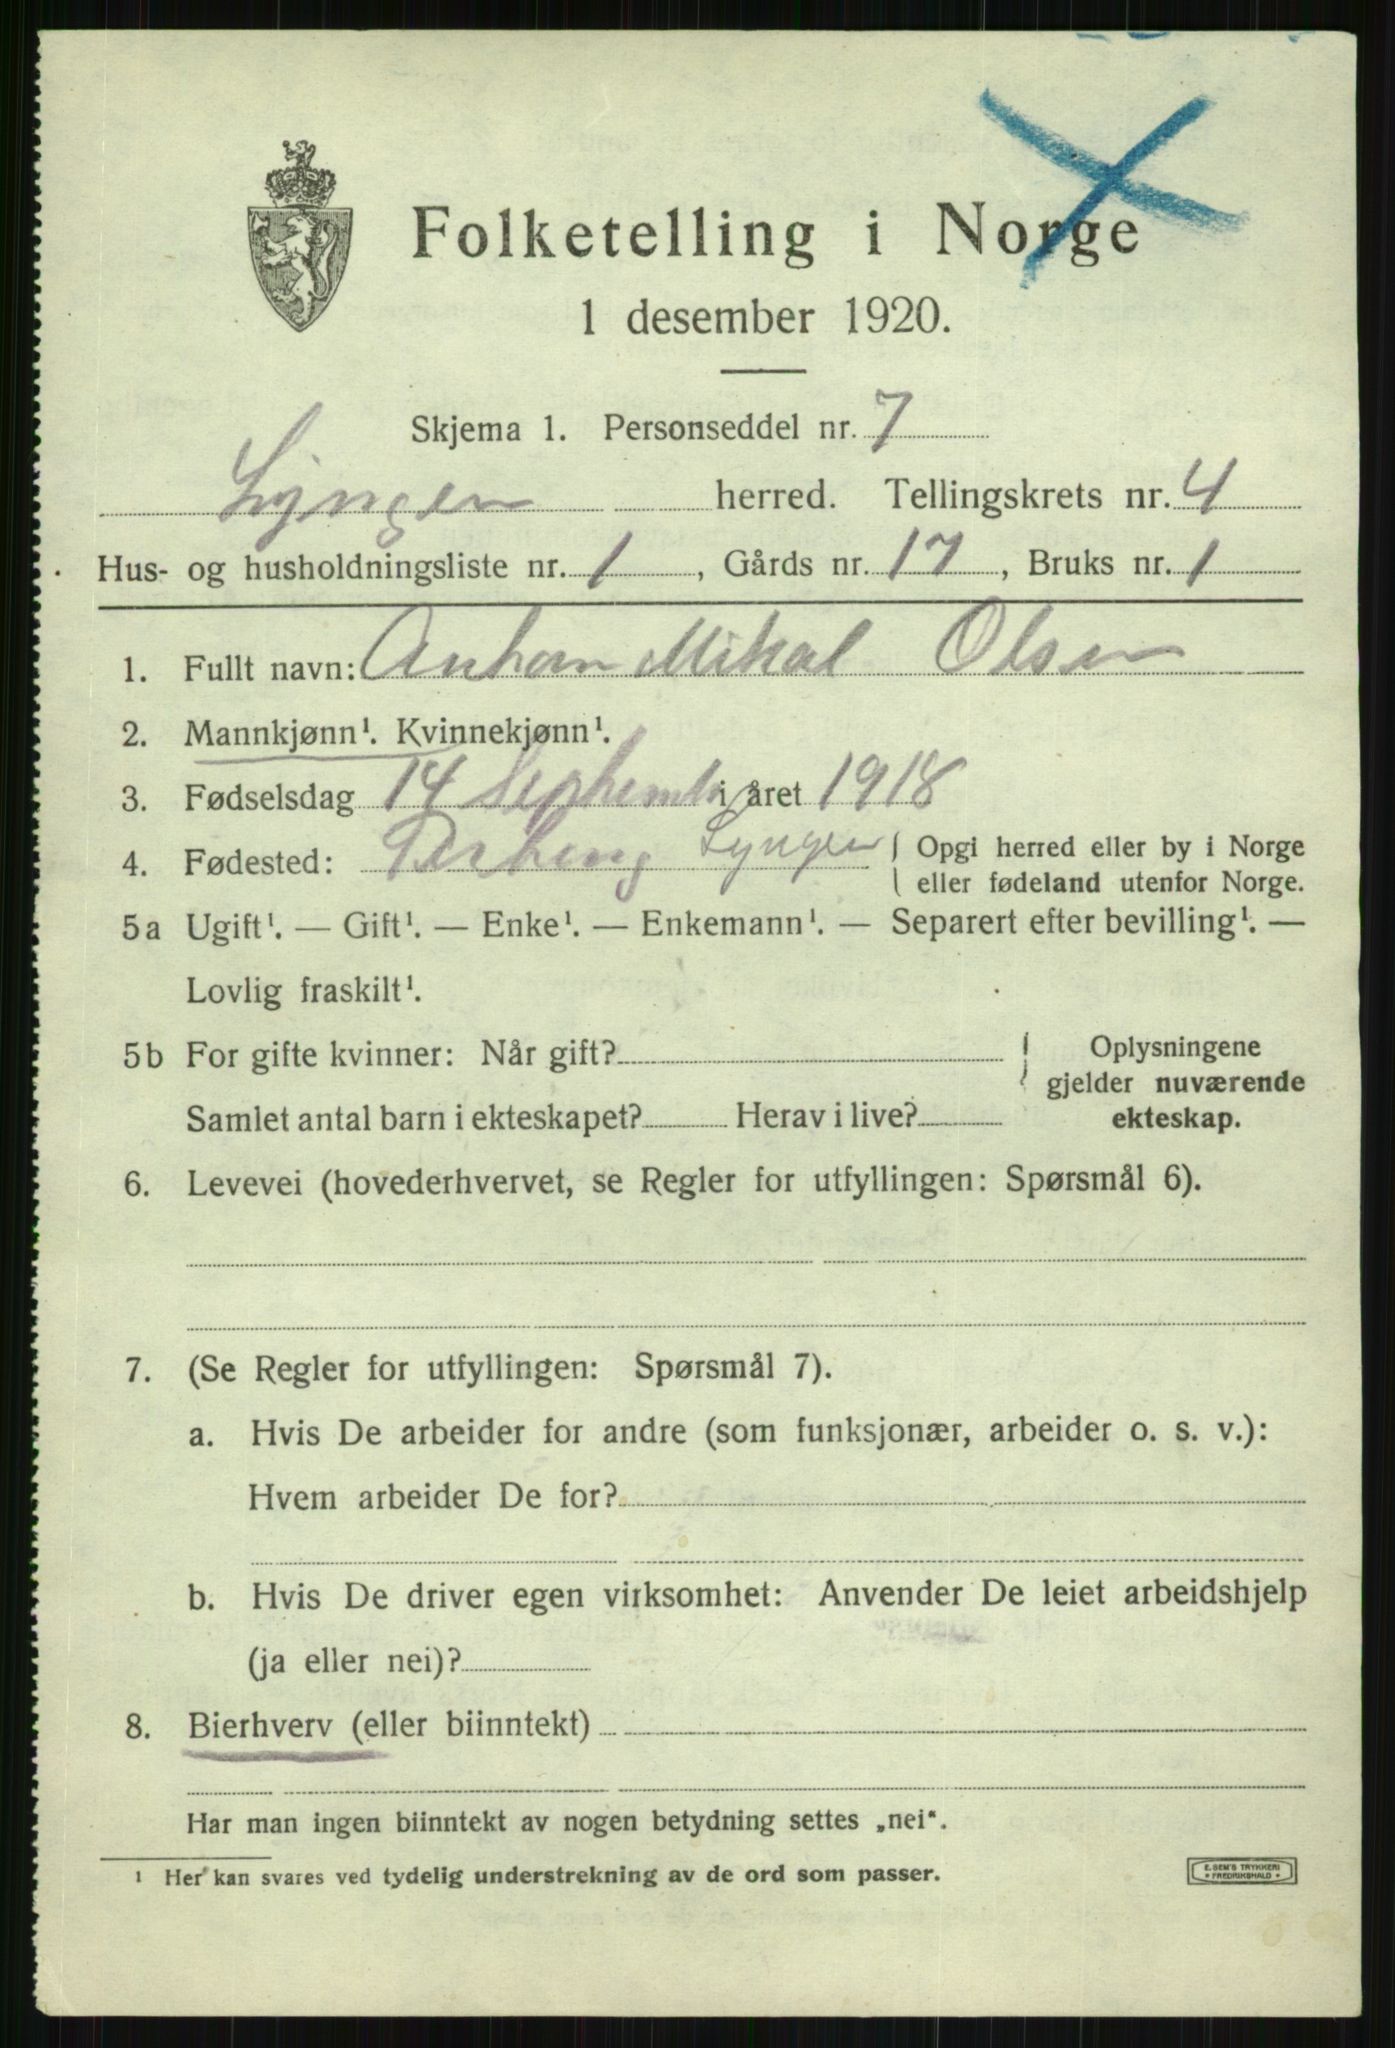 Folketelling i Norge
1 desember 1920.
Skjema 1. Personseddel nr. 7
Lyngen herred. Tellingskrets nr. 4
Hus- og husholdningsliste nr. 1, Gårds nr. 17, Bruks nr. 1
1. Fullt navn: Anton Mikal Olsen
2. Mannkjønn¹. Kvinnekjønn¹.
3. Fødselsdag 14 Septemb i året 1918
4. Fødested: Lyngen Opgi herred eller by i Norge
eller fødeland utenfor Norge.
5a Ugift¹. — Gift¹. — Enke¹. — Enkemann¹. — Separert efter bevilling¹. —
Lovlig fraskilt¹.
5b For gifte kvinner: Når gift? Oplysningene
gjelder nuværende
Samlet antal barn i ekteskapet? Herav i live? ekteskap.
6. Levevei (hovederhvervet, se Regler for utfyllingen: Spørsmål 6).
7. (Se Regler for utfyllingen: Spørsmål 7).
a. Hvis De arbeider for andre (som funksjonær, arbeider o. s. v.):
Hvem arbeider De for?
b. Hvis De driver egen virksomhet: Anvender De leiet arbeidshjelp
(ja eller nei)?
8. Bierhverv (eller biinntekt)
Har man ingen biinntekt av nogen betydning settes „nei“.
¹ Her kan svares ved tydelig understrekning av de ord som passer.
E. SEM'S TRYKKERI
FREDRIKSHALD